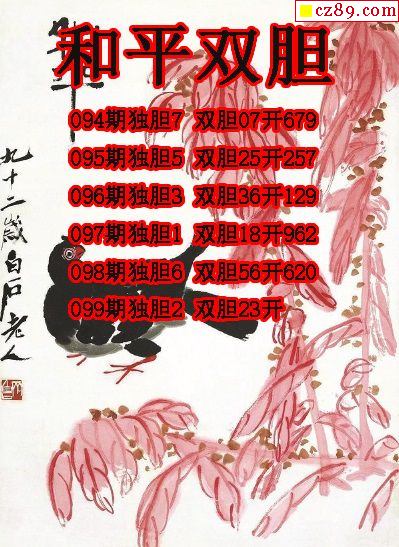 cz89.com
和平双胆
094期独胆7 双胆07开679
095期独胆5 双胆25开257
096期独胆3 双胆36开129
097期独胆1 双胆18开962
098期独胆6 双胆56开620
099期独胆2 双胆23开
九十二歲白石老人